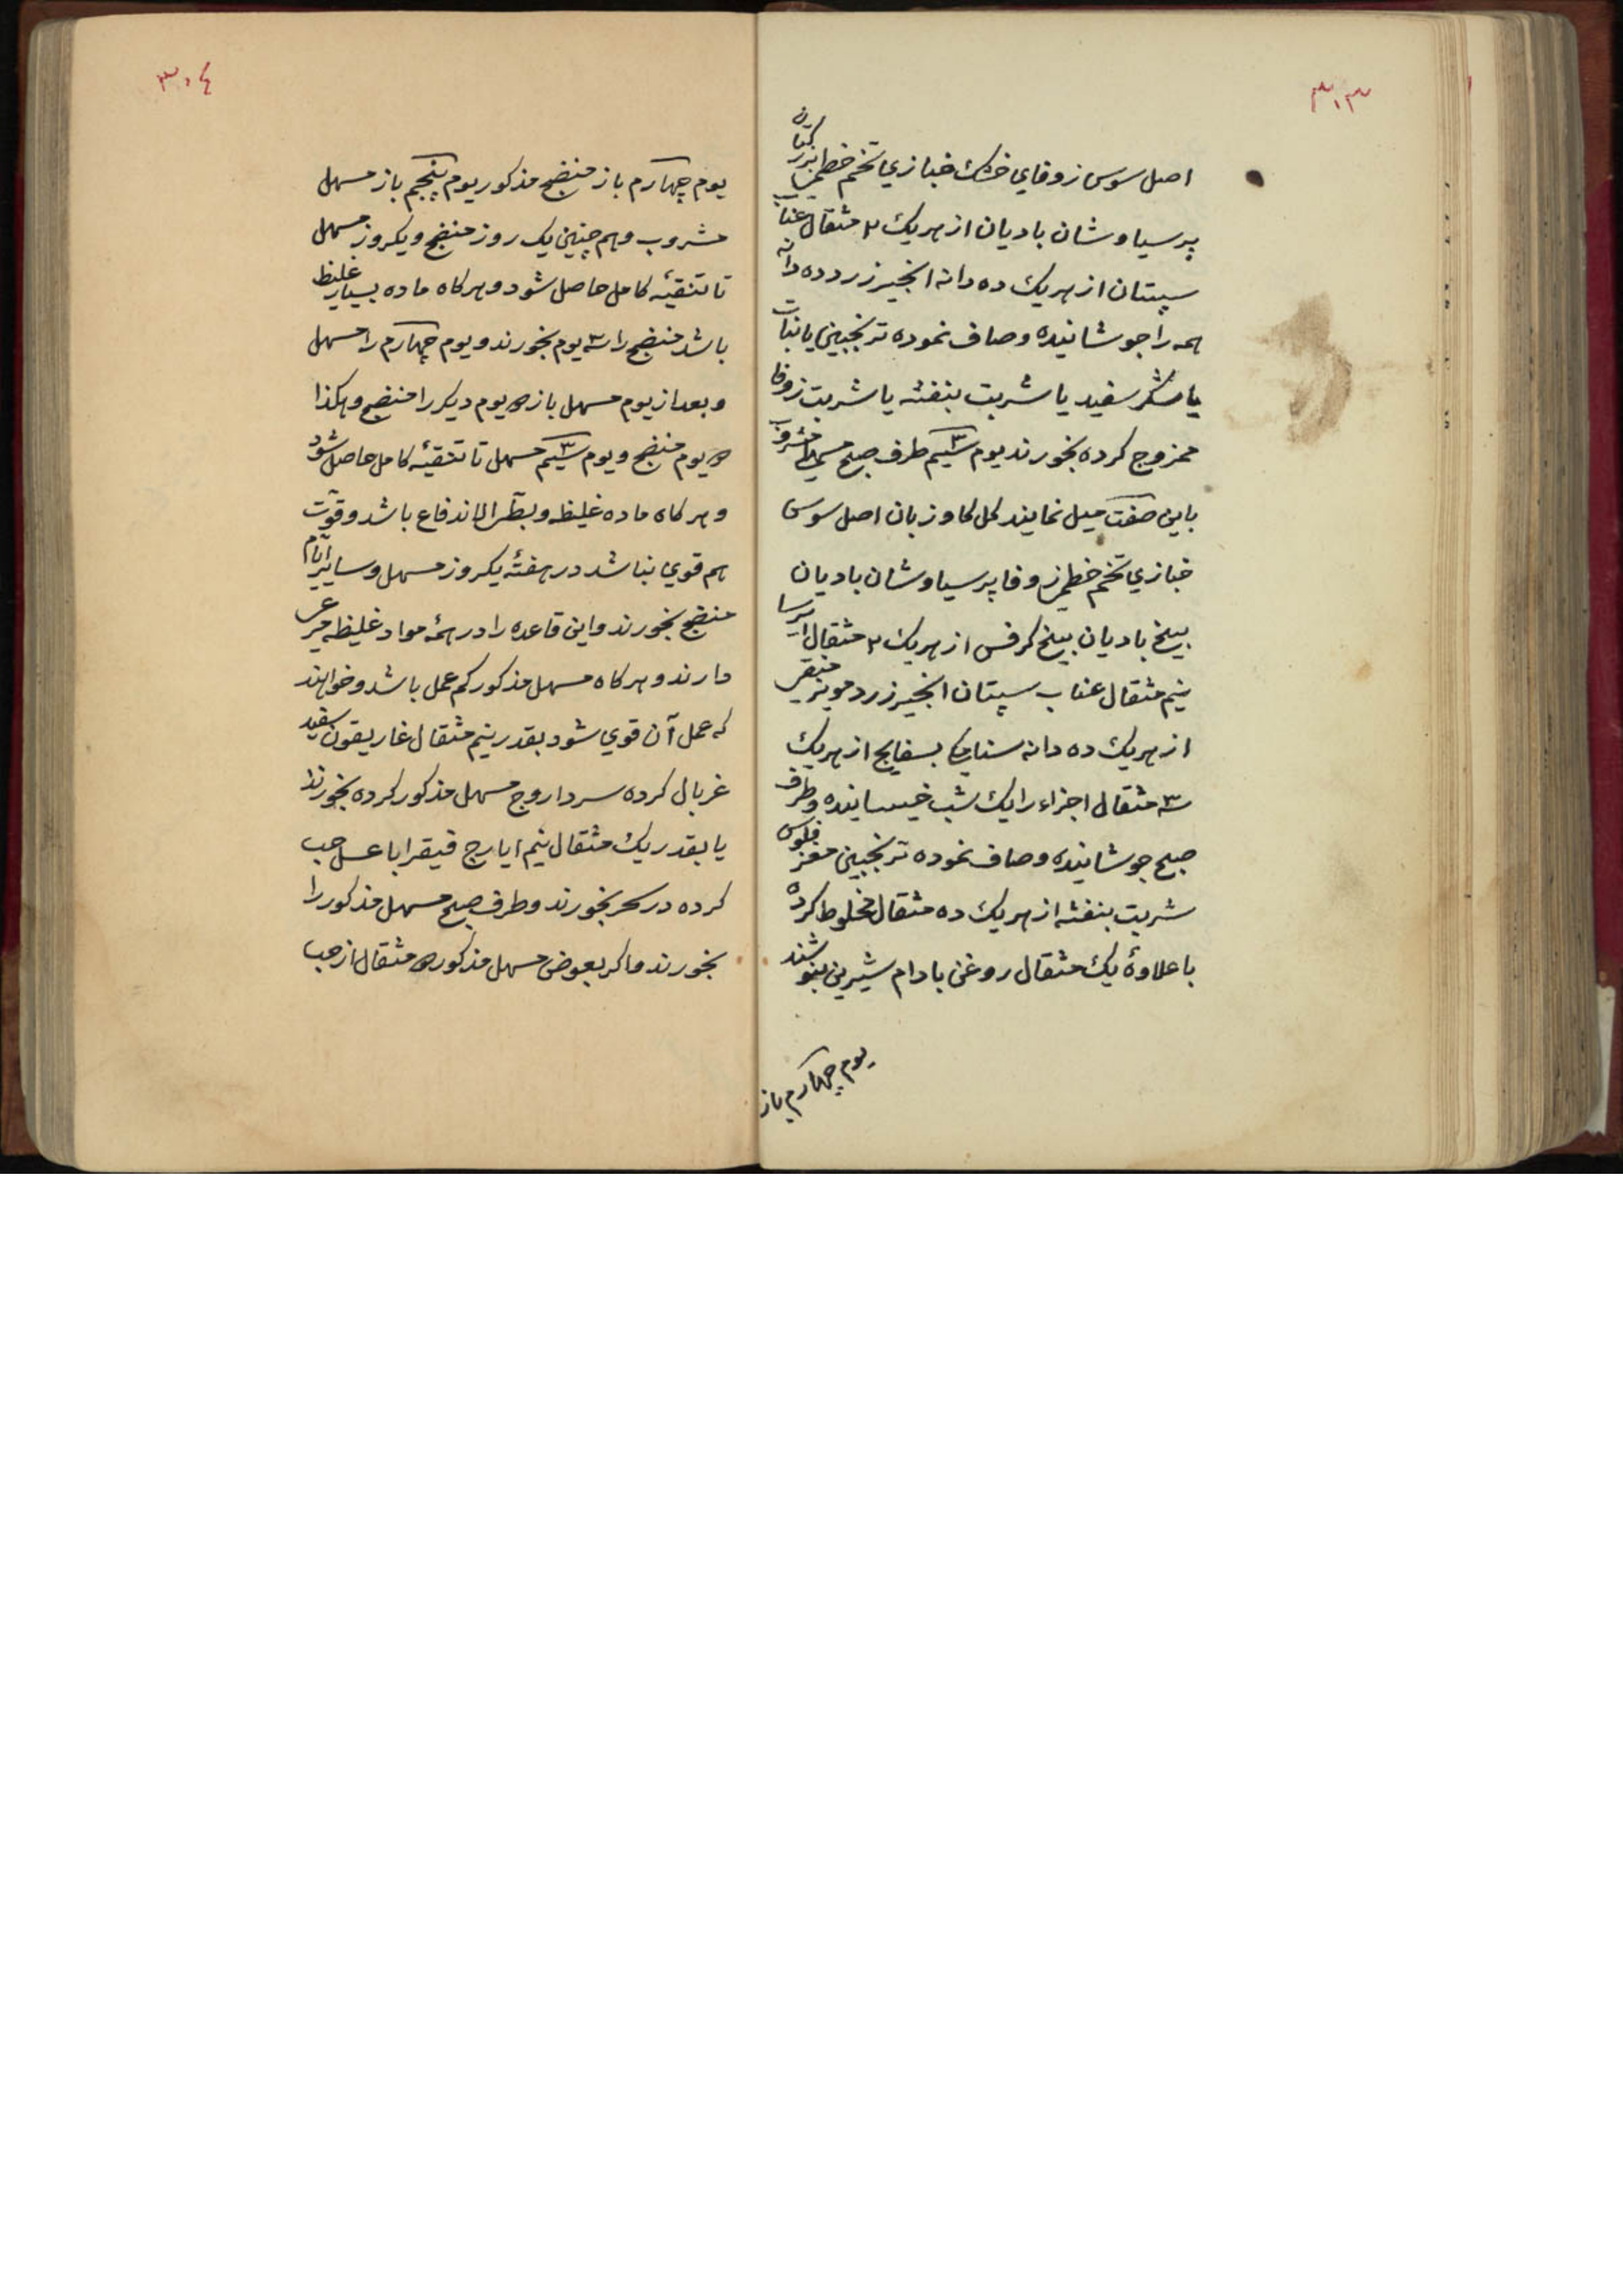 ۳۰۳
اصل سوس زوفای خشك خبازي تخم خطمي بزر كتان
پرسیاوشان بادیان از هریك ۲ مثقال عناب
سپتان از هریك ده دانه انجیر زرد ده دانه
همه را جوشانیده و صاف نموده ترنجبین یا نبات
یا شكر سفید یا شربت بنفشه یا شربت زوفا
ممزوج كرده بخورند یوم سیم طرف صبح مسهل مشروب
باین صفت میل نمایند كل كاوزبان اصل سوس
خبازي تخم خطمي زوفا پرسیاوشان بادیان
بیخ بادیان بیخ كرفس از هریك ۲ مثقال ایرسا
نیم مثقال عناب سپتان انجیر زرد مویز منقی
از هریك ده دانه سنا مكی بسفایج از هریك
۳ مثقال اجزاء را یك شب خیسانیده و طرف
صبح جوشانیده و صاف نموده ترنجبین مغز فلوس
شربت بنفشه از هریك ده مثقال مخلوط كرده
با علاوهٔ یك مثقال روغن بادام شیرین بنوشند
یوم چهارم باز
۳۰٤
یوم چهارم باز منضج مذكور یوم پنجم باز مسهل
مشروب و هم چنین یك روز منضج و یكروز مسهل
تا تنقیه كامل حاصل شود و هركاه ماده بسیار غلیظ
باشد منضج را سه یوم بخورند و یوم چهارم را مسهل
و بعد از یوم مسهل باز یوم دیكر را منضج و هكذا
یوم منضج و یوم سیم مسهل تا تنقیه كامل حاصل شود
و هركاه ماده غلیظ و بطئ الاندفاع باشد و قوّت
هم قوي نباشد در هفته یكروز مسهل و سایر ایّام
منضج بخورند و این قاعده را در همه مواد غلیظه مرعی
دارند و هركاه مسهل مذكور كم عمل باشد و خواهند
كه عمل آن قوي شود بقدر نیم مثقال غاریقون سفید
غربال كرده سر داروج مسهل مذكور كرده بخورند
یا بقدر یك مثقال نیم ایارج فیقرا با عسل حب
كرده در سحر بخورند و طرف صبح مسهل مذكور را
بخورند و اكر بعوض مسهل مذكور مثقال از حب